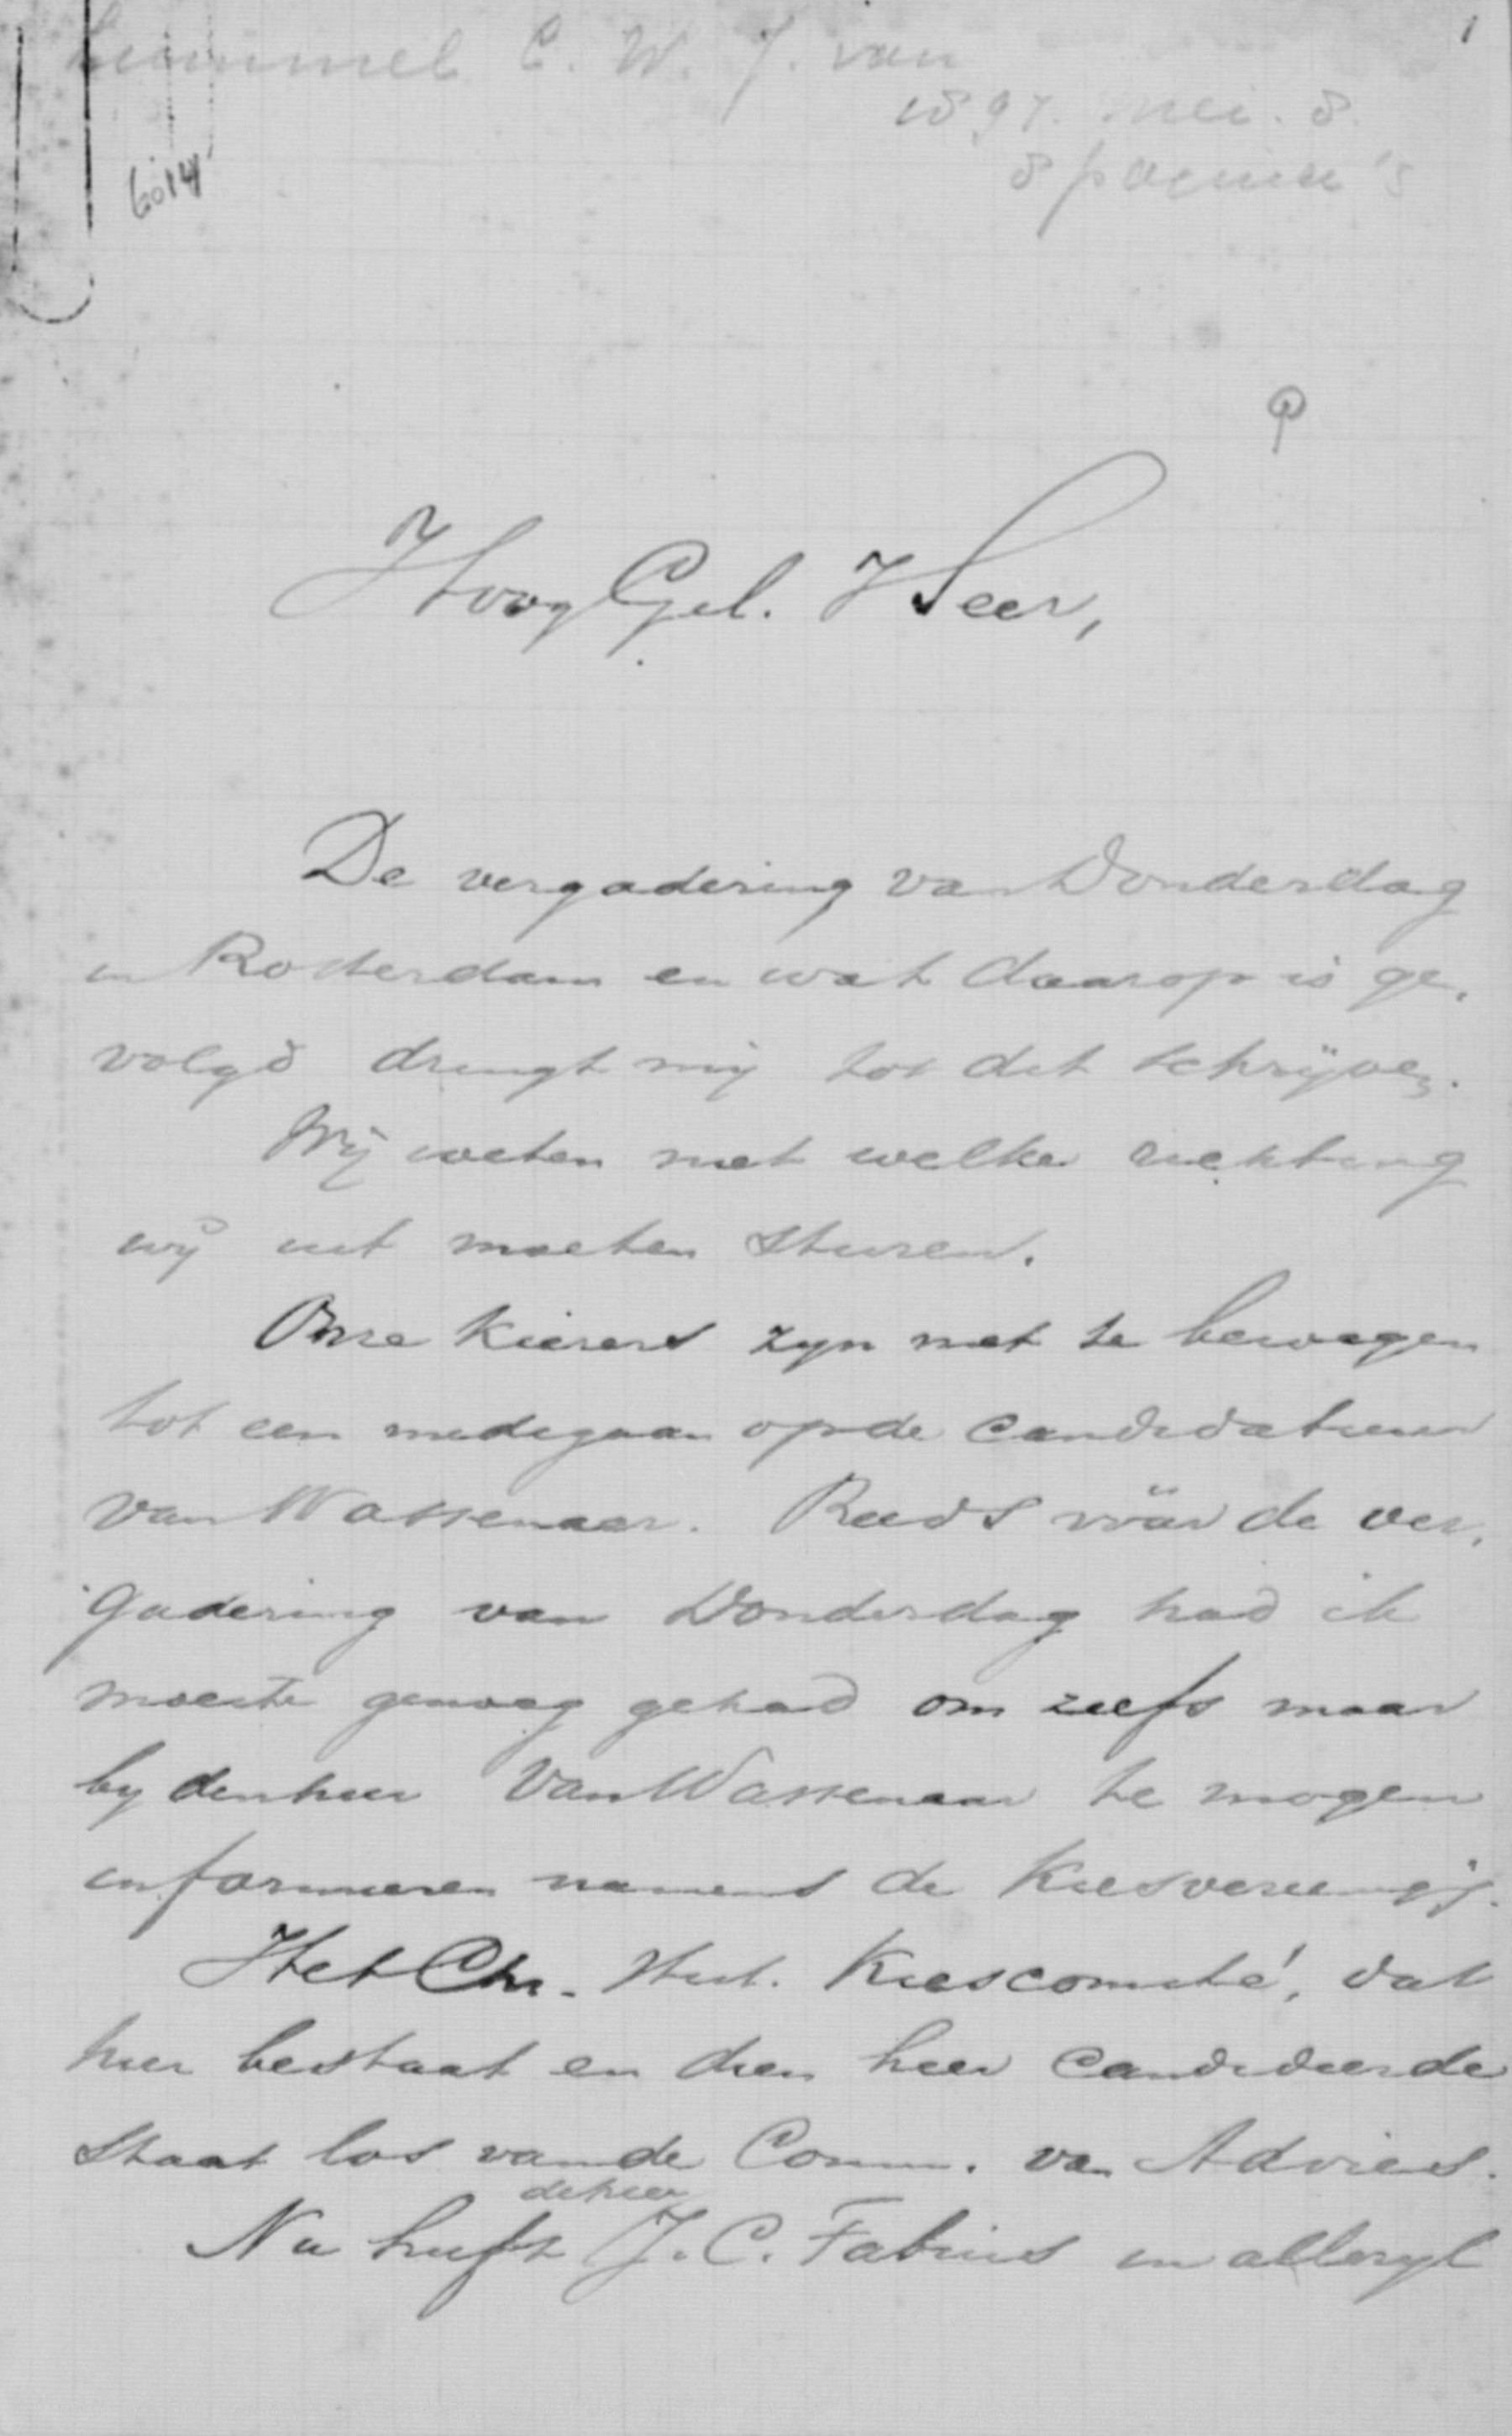 1
Lummel C. W. J. van
1897. Mei. 8.
8 pagina's
6014
HoogGel. Heer,
De vergadering van Donderdag
in Rotterdam en wat daarop is ge-
volgd dringt mij tot dit schrijven.
Wij weten niet welke richting
wij uit moeten sturen.
Onze kiezers zyn niet te bewegen
tot een medegaan op de candidatuur
van Wassenaar. Reeds vóór de ver-
gadering van Donderdag had ik
moeite genoeg gehad om zelfs maar
by den heer Van Wassenaar te mogen
informeeren namens de Kiesvereenigg.
Het Chr. Hist. Kiescomité, dat
hier bestaat en dien heer candideerde
staat los van de Comm. van Advies.
Nu heeft de heer J. C. Fabius in alleryl